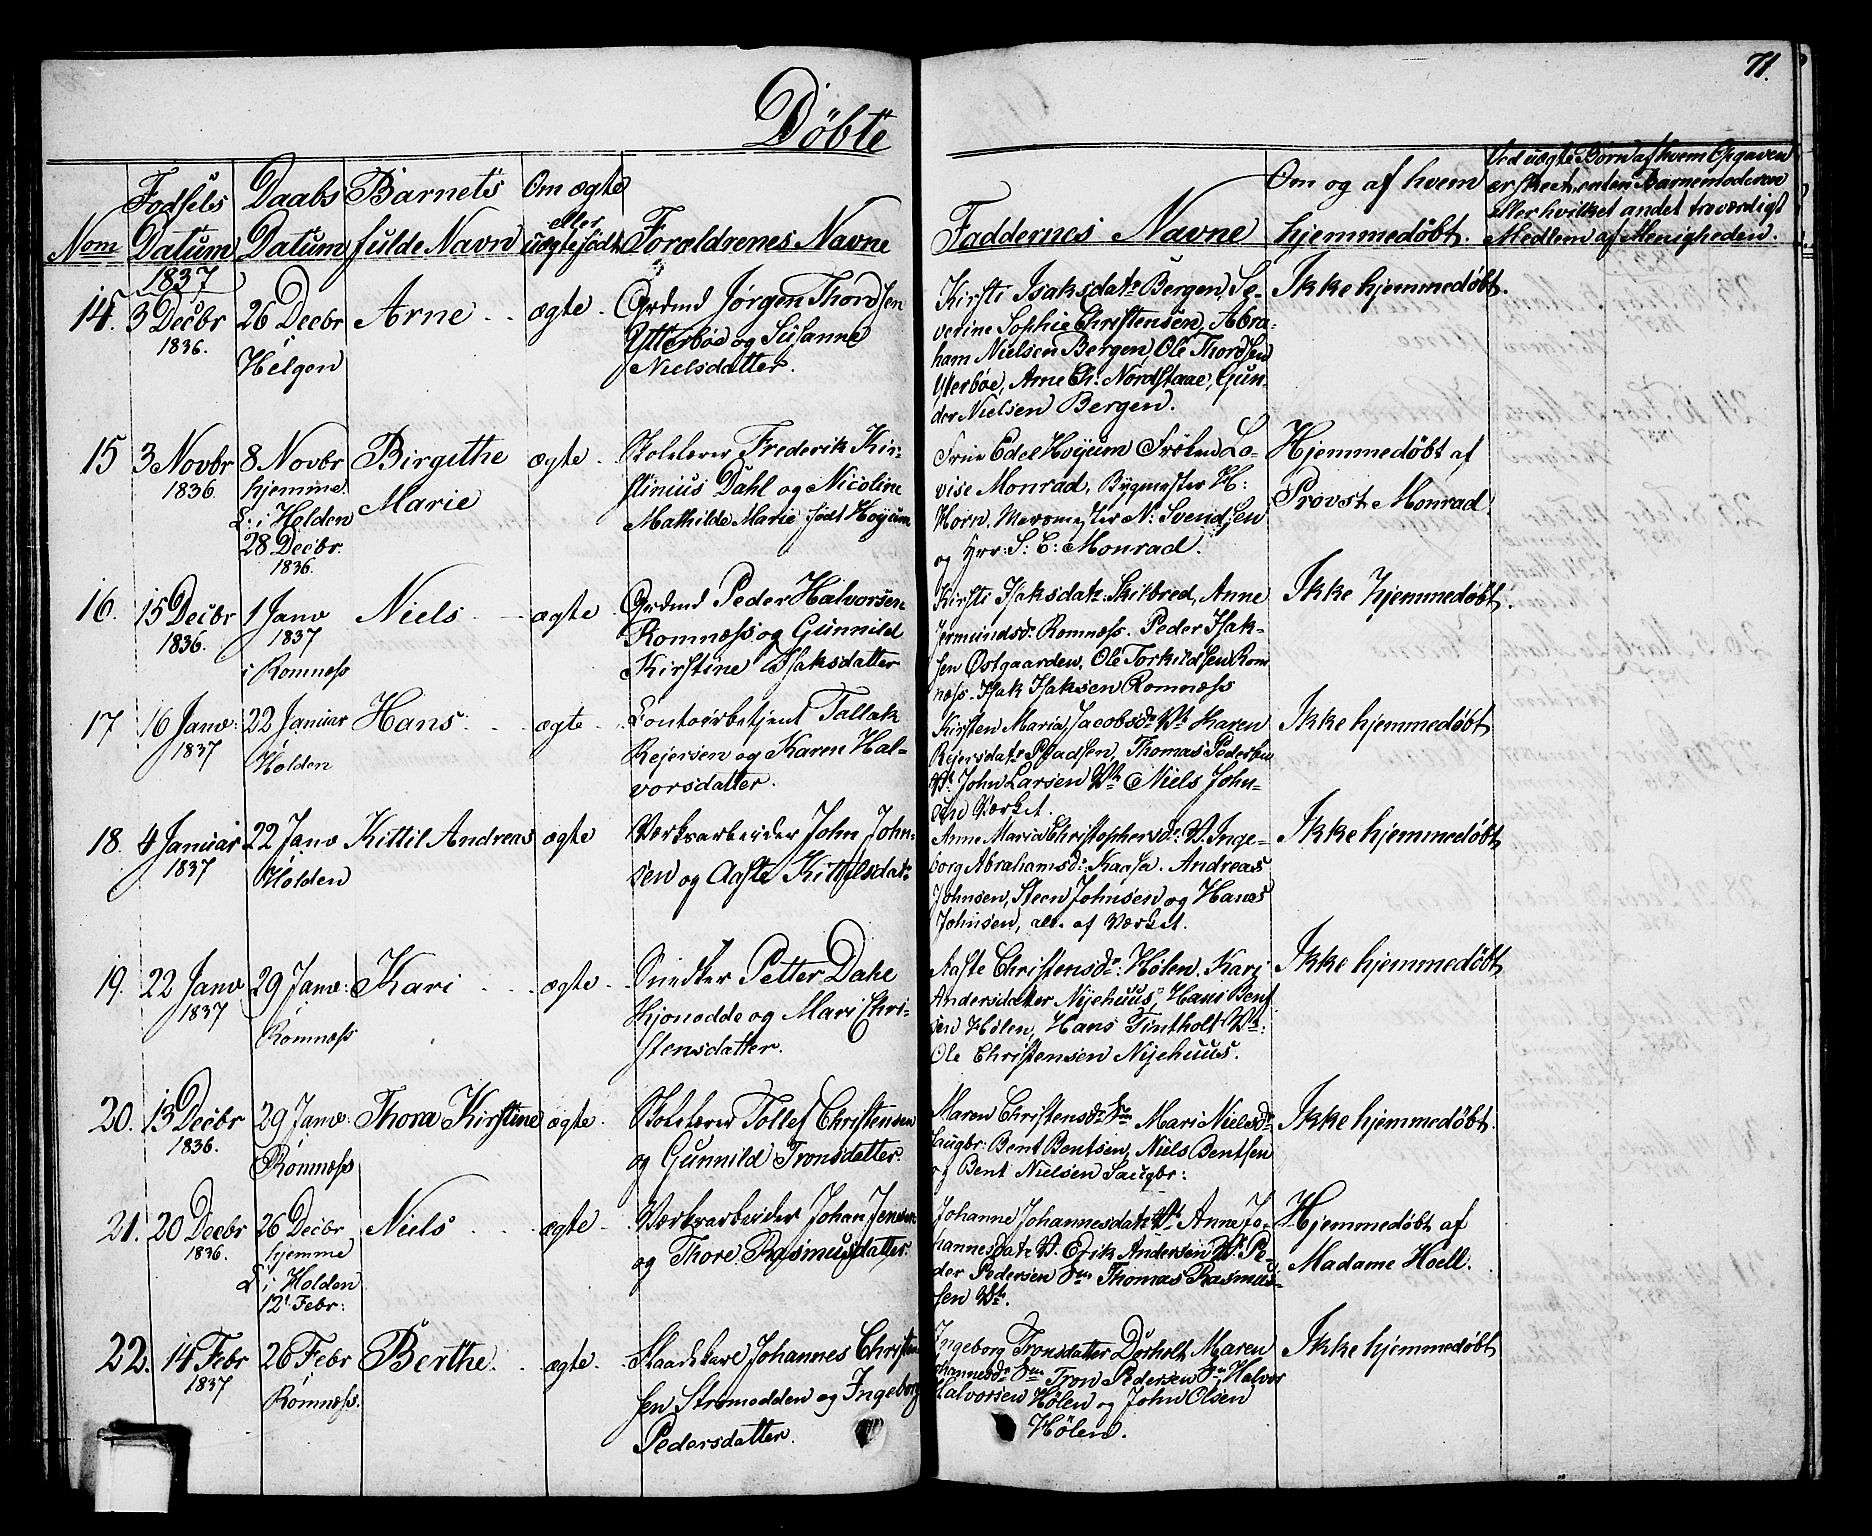 71.
Döbte
Nom
Fodsels Datum
Daabs Datum
Barnets fulde Navn
Om ægte eller uægte födt
Forældrenes Navne
Faddernes Navne
Om og af hvem hjemmedöbt.
Ved uægte Börn af hvem Opgaven
er skeet, enten Barnemoderen
eller hvilket andet troværdigt
Medlem af Menigheden.
1837
14. 3 Decbr 1836. 26 Decbr Helgen Arne ægte.
Grdmd Jörgen Thordsen
Ytterböe og Susanne
Nielsdatter.
Kirsti Isaksdatr Bergen, Se-
verine Sophie Christensen, Abra-
ham Nielsen Bergen, Ole Thordsen
Yterböe, Arne Ch: Nordstaae, Gun-
der Nielsen Bergen.
Ikke hjemmedöbt.
15 3 Novbr 1836 8 Novbr hjemme. D: i Holden 28 Decbr. 1836. Birgithe Marie ægte
Skolelærer Frederik Kir-
stinius Dahl og Nicoline
Mathilde Marie födt Höyum
Frue Edel Höyum Fröken Lo-
vise Monrad, Bygmester H:
Horn, N: Svendsen
og Hrr: S: C: Monrad.
Hjemmedöbt af
Provst Monrad
16. 15 Decbr 1836. 1 Janv 1837 i Romnæss Niels ægte
Grdmd Peder Halvorsen
Romnæss og Gunnild
Kirstine Isaksdatter
Kirsti Isaksdatr: Skilbred, Anne
Jermundsdr Romnæss. Peder Isak-
sen Östgaarden, Ole Torkildsen Rom
næss. Isak Isaksen Romnæss
Ikke hjemmedöbt.
17 16 Janv: 1837 22 Januar Holden Hans ægte
Contoirbetjent Tallak
Rejersen og Karen Hal-
vorsdatter.
Kirsten Maria Jacobsdr Vk Karen
Rejersdatr Pladsen, Thomas Pedersen
Vk John Larsen Vk Niels John-
sen Værket.
Ikke hjemmedöbt
18. 4 Januar 1837 22 Janv Holden Kittil Andreas ægte
Værksarbeider John John-
sen og Aaste Kittilsdatr
Anne Maria Christophersdr V. Inge-
borg Abrahamsdr: Kaasa. Andreas
Johnsen, Steen Johnsen og Hanes
Johnsen, alle af Værket.
Ikke hjemmedöbt
19. 22 Janv 1837 29 Janv: Romnæss Kari ægte
Snedker Petter Dahl
Kjonedde og Mari Chri-
stensdatter.
Aaste Christensdr: Hölen. Kari
Andersdatter Nyehuus, Hans Bent
sen Hölen, Hans Tintholt Vk:
Ole Christensen Nyehuus.
Ikke hjemmedöbt
20. 13 Decbr 1836. 29 Janv: Romnæss Thora Kirstine ægte
Skolelærer Tollef Christensen
og Gunnild Tronsdatter.
Maren Christensdr Mari Nielsdr
Saugbr: Bent Bentsen, Niels Bentsen
og Bent Nielsen Saugbr:
Ikke hjemmedöbt
21. 20 Decbr 1836. 26 Decbr hjemme D i Holden 12' Febr: Niels ægte
Værksarbeider Johan Jensen
og Thore Rasmusdatter.
Johanne Johannesdatr Vk Anne Jo-
hannesdatr V. Erik Andersen Vk Pe-
der Pedersen Thomas Rasmus-
sen Vk.
Hjemmedöbt af
Madame Hoell.
22. 14 Febr 1837 26 Febr Romnæss. Berthe. ægte.
Johannes Christen
sen Strömodden og Ingeborg
Pedersdatter.
Ingeborg Tronsdatter Dorholt Maren
Johannesdr Tron Pedersen Halvor
Halvorsen Hölen og John Olsen
Hölen.
Ikke hjemmedöbt